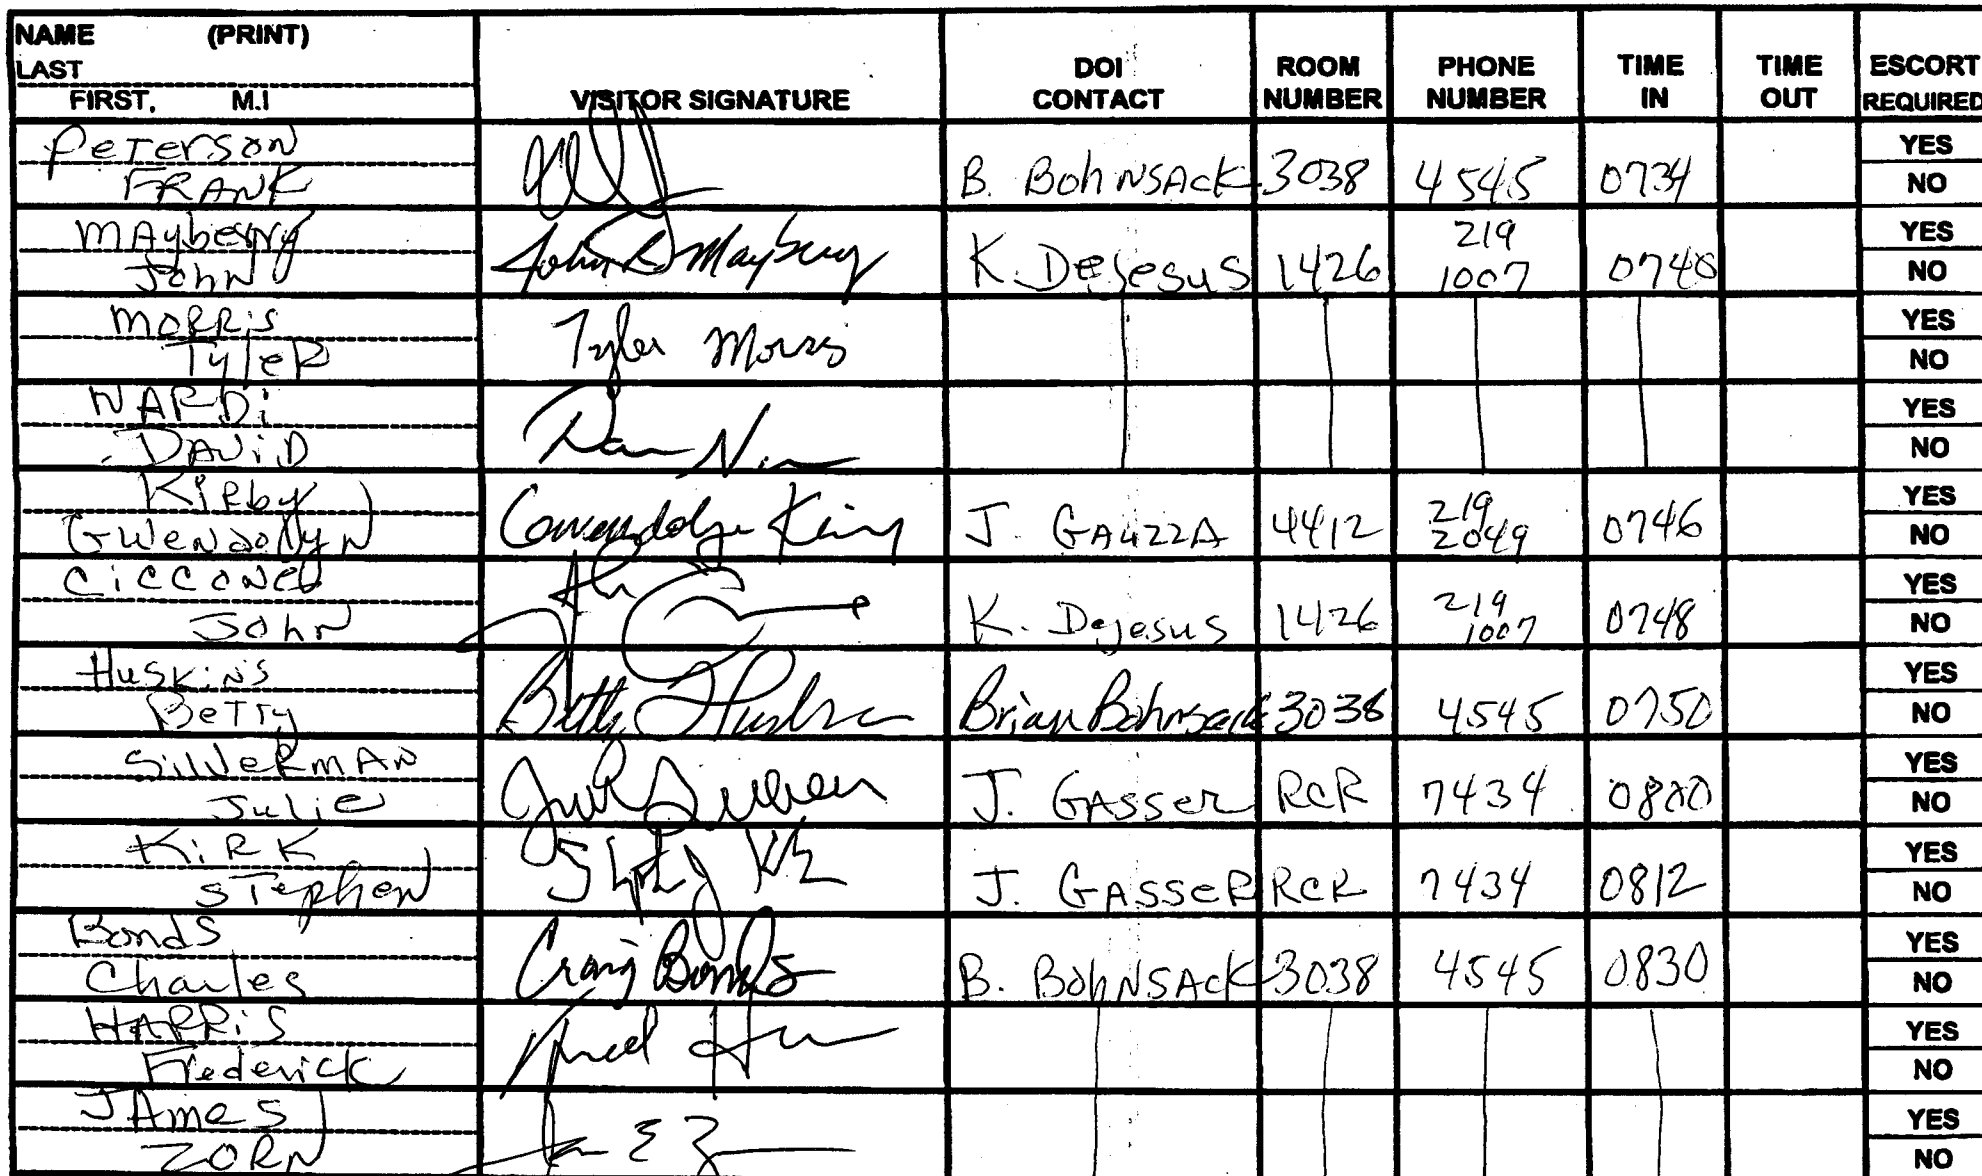 NAME (PRINT)
LAST
FIRST, M.I
VISITOR SIGNATURE
DOI CONTACT
ROOM NUMBER
PHONE NUMBER
TIME IN
TIME OUT
ESCORT REQUIRED
Peterson
FRANK
B. BohNSAck 3038 4545 0734
YES
NO
MAyberry
John
John Mayberry
K. DeJesus 1426 219 1007 0740
YES
NO
MORRiS
TyleR
Tyler Morris
YES
NO
NARDi
DAViD
YES
NO
KiRby
GWeNdolyN
J. GAuzzA 4412 219 2049 0746
YES
NO
CiCCoNe
JohN
K. Dejesus 1426 219 1007 0748
YES
NO
HuSKiNS
BeTTy
Brian Bohnsack 3038 4545 0750
YES
NO
SilveRmAN
Julie
J. GASSeR RCR 7434 0800
YES
NO
KiRK
STephen
J. GASSeR RCR 7434 0812
YES
NO
BondS
Charles
Craig Bonds
B. BohNSAck 3038 4545 0830
YES
NO
HARRiS
Frederick
YES
NO
JAmeS
ZORN
YES
NO